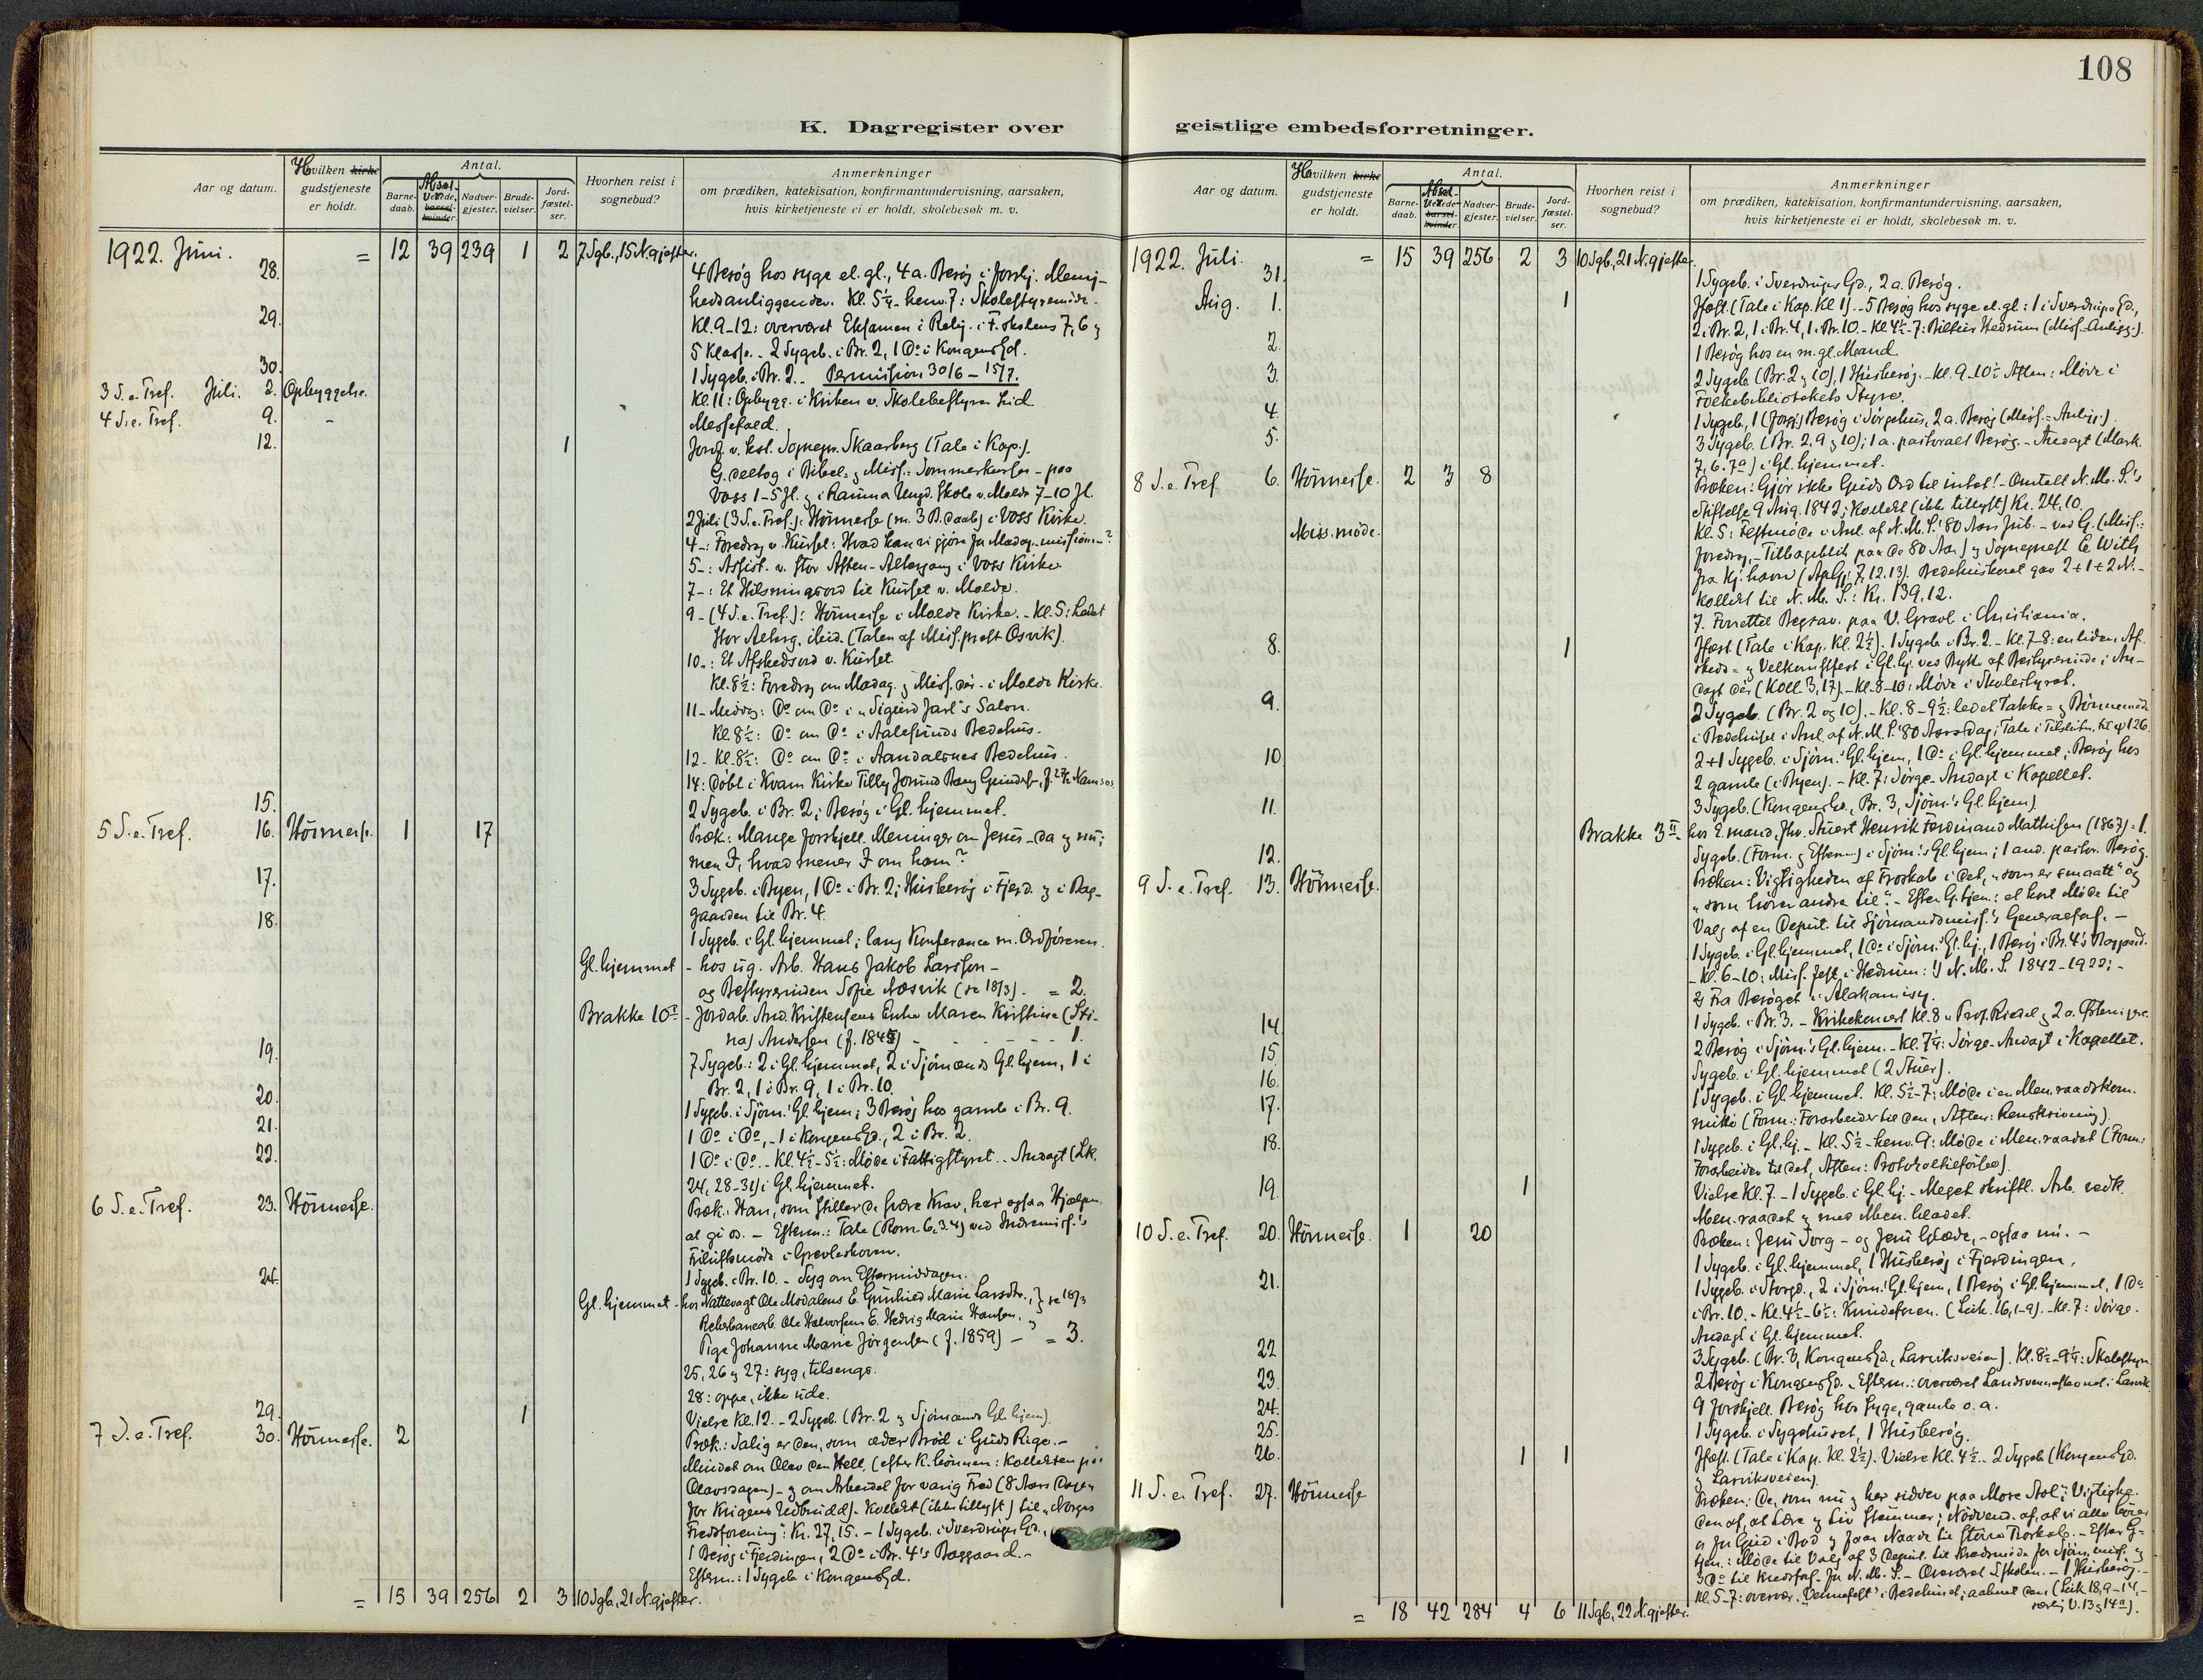 108
K. Dagregister over geistlige embedsforretninger.
Aar og datum.
Hvilken kirke
gudstjeneste
er holdt.
Antal.
Barne-
daab.
Nadver-
gjester.
Brude-
vielser.
Jord-
fæstel-
ser.
Hvorhen reist i
sognebud?
Anmerkninger
om prædiken, katekisation, konfirmantundervisning, aarsaken,
hvis kirketjeneste ei er holdt, skolebesøk m. v.
1922. Juni. = 12 39 239 1 2 7 Sgb., 15 N.gjester.
28. 4 Besøg hos syge el. gl., 4 a. Besøg i forskj. Menig-
hedsanliggender. Kl. 5¼ - henv. 7: Skolestyremøde.
29. Kl. 9-12: overværet Eksamen i Relig. i F. skolens 7, 6 og
5 Klasse. - 2 Sygeb. i Br. 2, 1 Do i Kongens Gd.
30. 1 Sygeb. i Br. 2. - Permission 30/6 - 15/7.
3 S. e. Tref. Juli. 2. Opbyggelse. Kl. 11: Opbygg. i Kirken v. Skolebestyrer Lid.
4 S. e. Tref. 9. - Messefald.
12. 1 Jordf. v. kst. Sognepr. Skaarberg (Tale i Kap.).
G. deltog i Bibel- og Miss.-Sommerkurser - paa
Voss 1-5 Jl. og i Rauma Ungd. skole v. Molde 7-10 Jl.
2 Juli (3 S. e. Tref.): Höimesse (m. 3 B. daab) i Voss Kirke.
4-: Foredrag v. Kurset: Hvad kan vi gjöre for Madag. missionen?
5-: Assist. v. stor Aften-Altergang i Voss Kirke.
7-: Et Hilsningsord til Kurset v. Molde.
9- (4 S. e. Tref.): Höimesse i Molde Kirke. - Kl. 5: Ledet
stor Alterg. ibid. (Talen af Miss.prest Osvik).
10-: Et Afskedsord v. Kurset.
Kl. 8½: Foredrag om Madag. og Miss. der - i Molde Kirke.
11- Middag: Do om Do i "Sigurd Jarl"s Salon.
Kl. 8½: Do om Do i Aalesunds Bedehus.
12- Kl. 8½: Do om Do i Aandalsnes Bedehus.
14: Døbt i Kvam Kirke
15. 2 Sygeb. i Br. 2; Besøg i Gl. hjemmet.
5 S. e. Tref. 16. Höimesse. 1 17 Præk.: Mange forskjell. Meninger om Jesus - da og nu;
men I, hvad mener I om ham?
17. 3 Sygeb. i Byen, 1 Do i Br. 2; Husbesøg i Fjerd. og i Bag-
gaarden til Br. 4.
18. 1 Sygeb. i Gl. hjemmet; lang Konferance m. Ordföreren.
Gl. hjemmet - hos ug. Arb. Hans Jakob Larsson -
og Bestyrerinden Sofie Næsvik (se 18/3). = 2.
Brakke 10 - Jordab. And. Kristensens Enke Maren Kristine (Sti-
na) Andersen - 1.
19. 7 Sygeb.: 2 i Gl. hjemmet, 2 i Sjömænds Gl. hjem, 1 i
Br. 2, 1 i Br. 9, 1 i Br. 10.
20. 1 Sygeb. i Sjöm.' Gl. hjem; 3 Besøg hos gamle i Br. 9.
21. 1 Do i Do, - 1 i Kongens Gd., 2 i Br. 2.
22. 1 Do i Do. - Kl. 4½-5½: Møde i Fattigstyret. - Andagt (Lk.
24, 28-31) i Gl. hjemmet.
6 S. e. Tref. 23. Höimesse. Præk.: Han, som stiller de svære Krav, har ogsaa Hjælpen
at gi os. - Efterm.: Tale (Rom. 6, 3.4) ved Indremiss.'s
Friluftsmøde i Grevleskoven.
24. 1 Sygeb. i Br. 10. - Syg om Eftermiddagen.
Gl. hjemmet - hos Nattevagt Ole Modalens E. Gunhild Marie Larsdtr., se 18/3
Reberbanearb. Ole Halvorsens E. Hedvig Marie Hansen,
Pige Johanne Marie Jörgensen (f. 1859) - = 3.
25, 26 og 27: syg, tilsengs.
28: oppe, ikke ude.
29. 1 Vielse Kl. 12. - 2 Sygeb. (Br. 2 og Sjömænds Gl. hjem)
7 S. e. Tref. 30. Höimesse. 2 Præk.: Salig er den, som æder Bröd i Guds Rige. -
Mindet om Olav den Hell. (efter K. bönnen: Kollekten paa
Olavsdagen) - og om Arbeidet for varig Fred (8 Aars Dagen
for Krigens Udbrudd). - Kollekt (ikke tillyst) til "Norges
Fredsforening": Kr. 27,15. - 1 Sygeb. i Sverdrups Gd.,
1 Besøg i Fjerdingen, 2 Do i Br. 4's Baggaard. -
Efterm.: 1 Sygeb. i Kongens Gd.
= 15 39 256 2 3 10 Sgb., 21 N.gjester.
Aar og datum.
Hvilken kirke
gudstjeneste
er holdt.
Antal.
Barne-
daab.
Nadver-
gjester.
Brude-
vielser.
Jord-
fæstel-
ser.
Hvorhen reist i
sognebud?
Anmerkninger
om prædiken, katekisation, konfirmantundervisning, aarsaken,
hvis kirketjeneste ei er holdt, skolebesøk m. v.
1922. Juli. = 15 39 256 2 3 10 Sgb., 21 N.gjester.
31. 1 Sygeb. i Sverdrups Gd., 2 a. Besøg.
Aug. 1. 1 Jfæst. (Tale i Kap. Kl. 1). - 5 Besøg hos syge el. gl.: 1 i Sverdrups Gd.,
2 i Br. 2, 1 i Br. 4, 1 i Br. 10. - Kl. 4½-7: Biltur Hedrum (Miss.-Anligg.).
2. 1 Besøg hos en m. gl. Mand.
3. 2 Sygeb. (Br. 2 og 10), 1 Husbesøg. - Kl. 9-10½ Aften: Møde i
Folkebibliotekets Styre.
4. 1 Sygeb., 1 (forg.) Besøg i Sörgehus, 2 a. Besøg (Miss.-Anligg.).
5. 3 Sygeb. (Br. 2, 9 og 10); 1 a. pastoralt Besøg. - Andagt (Mark.
7, 6. 7a) i Gl. hjemmet.
8 S. e. Tref. 6. Höimesse. 2 3 8 Præken: Gjör ikke Guds Ord til intet! - Omtalt N. M. S.'s
Stiftelse 9 Aug. 1842; Kollekt (ikke tillyst) Kr. 24,10.
Miss. møde. Kl. 5: Festmøde i Anl. af N. M. S.' 80 Aars Jub. - ved G. (Miss.-
foredrag, - Tilbageblik paa de 80 Aar) og Sogneprest E. With
fra Kj.havn (ApGj. 7, 12. 13). Bedehuskoret gav 2+1+2 N. -
Kollekt til N. M. S.: Kr. 139,12.
7. Forrettet Begrav. paa V. Gravl. i Christiania.
8. 1 Jfæst. (Tale i Kap. Kl. 2½). 1 Sygeb. i Br. 2. - Kl. 7-8: en liden Af-
skeds- og Velkomstfest i Gl. hj. ved Bytte af Bestyrerinde; An-
dagt der (Koll. 3, 17). - Kl. 8-10: Møde i Skolestyret.
9. 2 Sygeb. (Br. 2 og 10). - Kl. 8-9½: ledet Takke- og Bönnemøde
i Bedehuset i Anl. af N. M. S.' 80 Aarsdag; Tale i Tilslutn. til Ps. 126.
10. 2+1 Sygeb. i Sjöm.' Gl. hjem, 1 Do i Gl. hjemmet; Besøg hos
2 gamle (i Byen). - Kl. 7: Sörge-Andagt i Kapellet.
11. 3 Sygeb. (Kongens Gd., Br. 3, Sjöm.'s Gl. hjem)
Brakke 3 - hos E. mand, fhv. Stuert Henrik Ferdinand Mathisen (1867) = 1.
12. Sygeb. (Form. og Efterm.) i Sjöm.'s Gl. hjem; 1 and. pastor. Besøg.
9 S. e. Tref. 13. Höimesse. Præken: Vigtigheden af Troskab i det, "som er smaatt" og
"som hörer andre til". - Efter G. tjen.: et kort Møde til
Valg af en Deput. til Sjömandsmiss.'s Generalfors. -
1 Sygeb. i Gl. hjemmet, 1 Do i Sjöm.' Gl. hj., 1 Besøg i Br. 4's Baggaard.
- Kl. 6-10: Miss. fest i Hedrum: 1) N. M. S. 1842-1922; -
2) Fra Besøget i Alakamisy.
14. 1 Sygeb. i Br. 3. - Kirkekoncert Kl. 8
15. 2 Besøg i Sjöm.'s Gl. hjem. - Kl. 7¼: Sörge-Andagt i Kapellet.
16. Sygeb. i Gl. hjemmet (2 Stuer).
17. 1 Sygeb. i Gl. hjemmet. Kl. 5½-7: Møde i en Men.raadskom-
mitté (Form.: Forarbeider til den, Aften: Renskrivning).
18. 1 Sygeb. i Gl. hj. - Kl. 5½ - henv. 9: Møde i Men.raadet (Form.:
Forarbeider til det, Aften: Protokoltilförsel).
19. 1 Vielse Kl. 7. - 1 Sygeb. i Gl. hj. - Meget skriftl. Arb. vedk.
Men.raadet og med Men.bladet.
10 S. e. Tref. 20. Höimesse. 1 20 Præken: Jesu Sorg - og Jesu Glæde, - ogsaa nu. -
1 Sygeb. i Gl. hjemmet, 1 Husbesøg i Fjerdingen.
21. 1 Sygeb. i Storgd., 2 i Sjöm.' Gl. hjem, 1 Besøg i Gl. hjemmet, 1 Do
i Br. 10. - Kl. 4½-6½: Kvindeforen. (Luk. 16, 1-9). - Kl. 7: Sörge-
Andagt i Gl. hjemmet.
22. 3 Sygeb. (Br. 3, Kongens Gd., Larviksveien). Kl. 8½-9¼: Skolestyre.
23. 2 Besøg i Kongens Gd. - Efterm.: overværet Landsvennestevnet i Larvik.
24. 9 forskjell. Besøg hos syge, gamle o. a.
25. 1 Sygeb. i Sygehuset, 1 Husbesøg.
26. 1 1 Jfæst. (Tale i Kap. Kl. 2½). Vielse Kl. 4½. - 2 Sygeb. (Kongens Gd.
og Larviksveien)
11 S. e. Tref. 27. Höimesse Præken: De, som nu og her sidder paa "Mose Stol"; Vigtighe-
den af, at Lære og Liv stemmer; Nödvend. af, at vi alle böier
os for Gud i Bod og faar Naade til större Troskab. - Efter G-
tjen.: Møde til Valg af 3 Deput. til Kredsmøde for Sjöm. miss. og
3 Do til Kredsfors. for N. M. S. - Overværet S.skolen. - 1 Husbesøg. -
Kl. 5-7: overvær. "Vennefest" i Bedehuset; aabnet den (Luk. 18, 9-14, -
særlig V. 13 og 14a).
= 18 42 284 4 6 11 Sgb., 22 N.gjester.